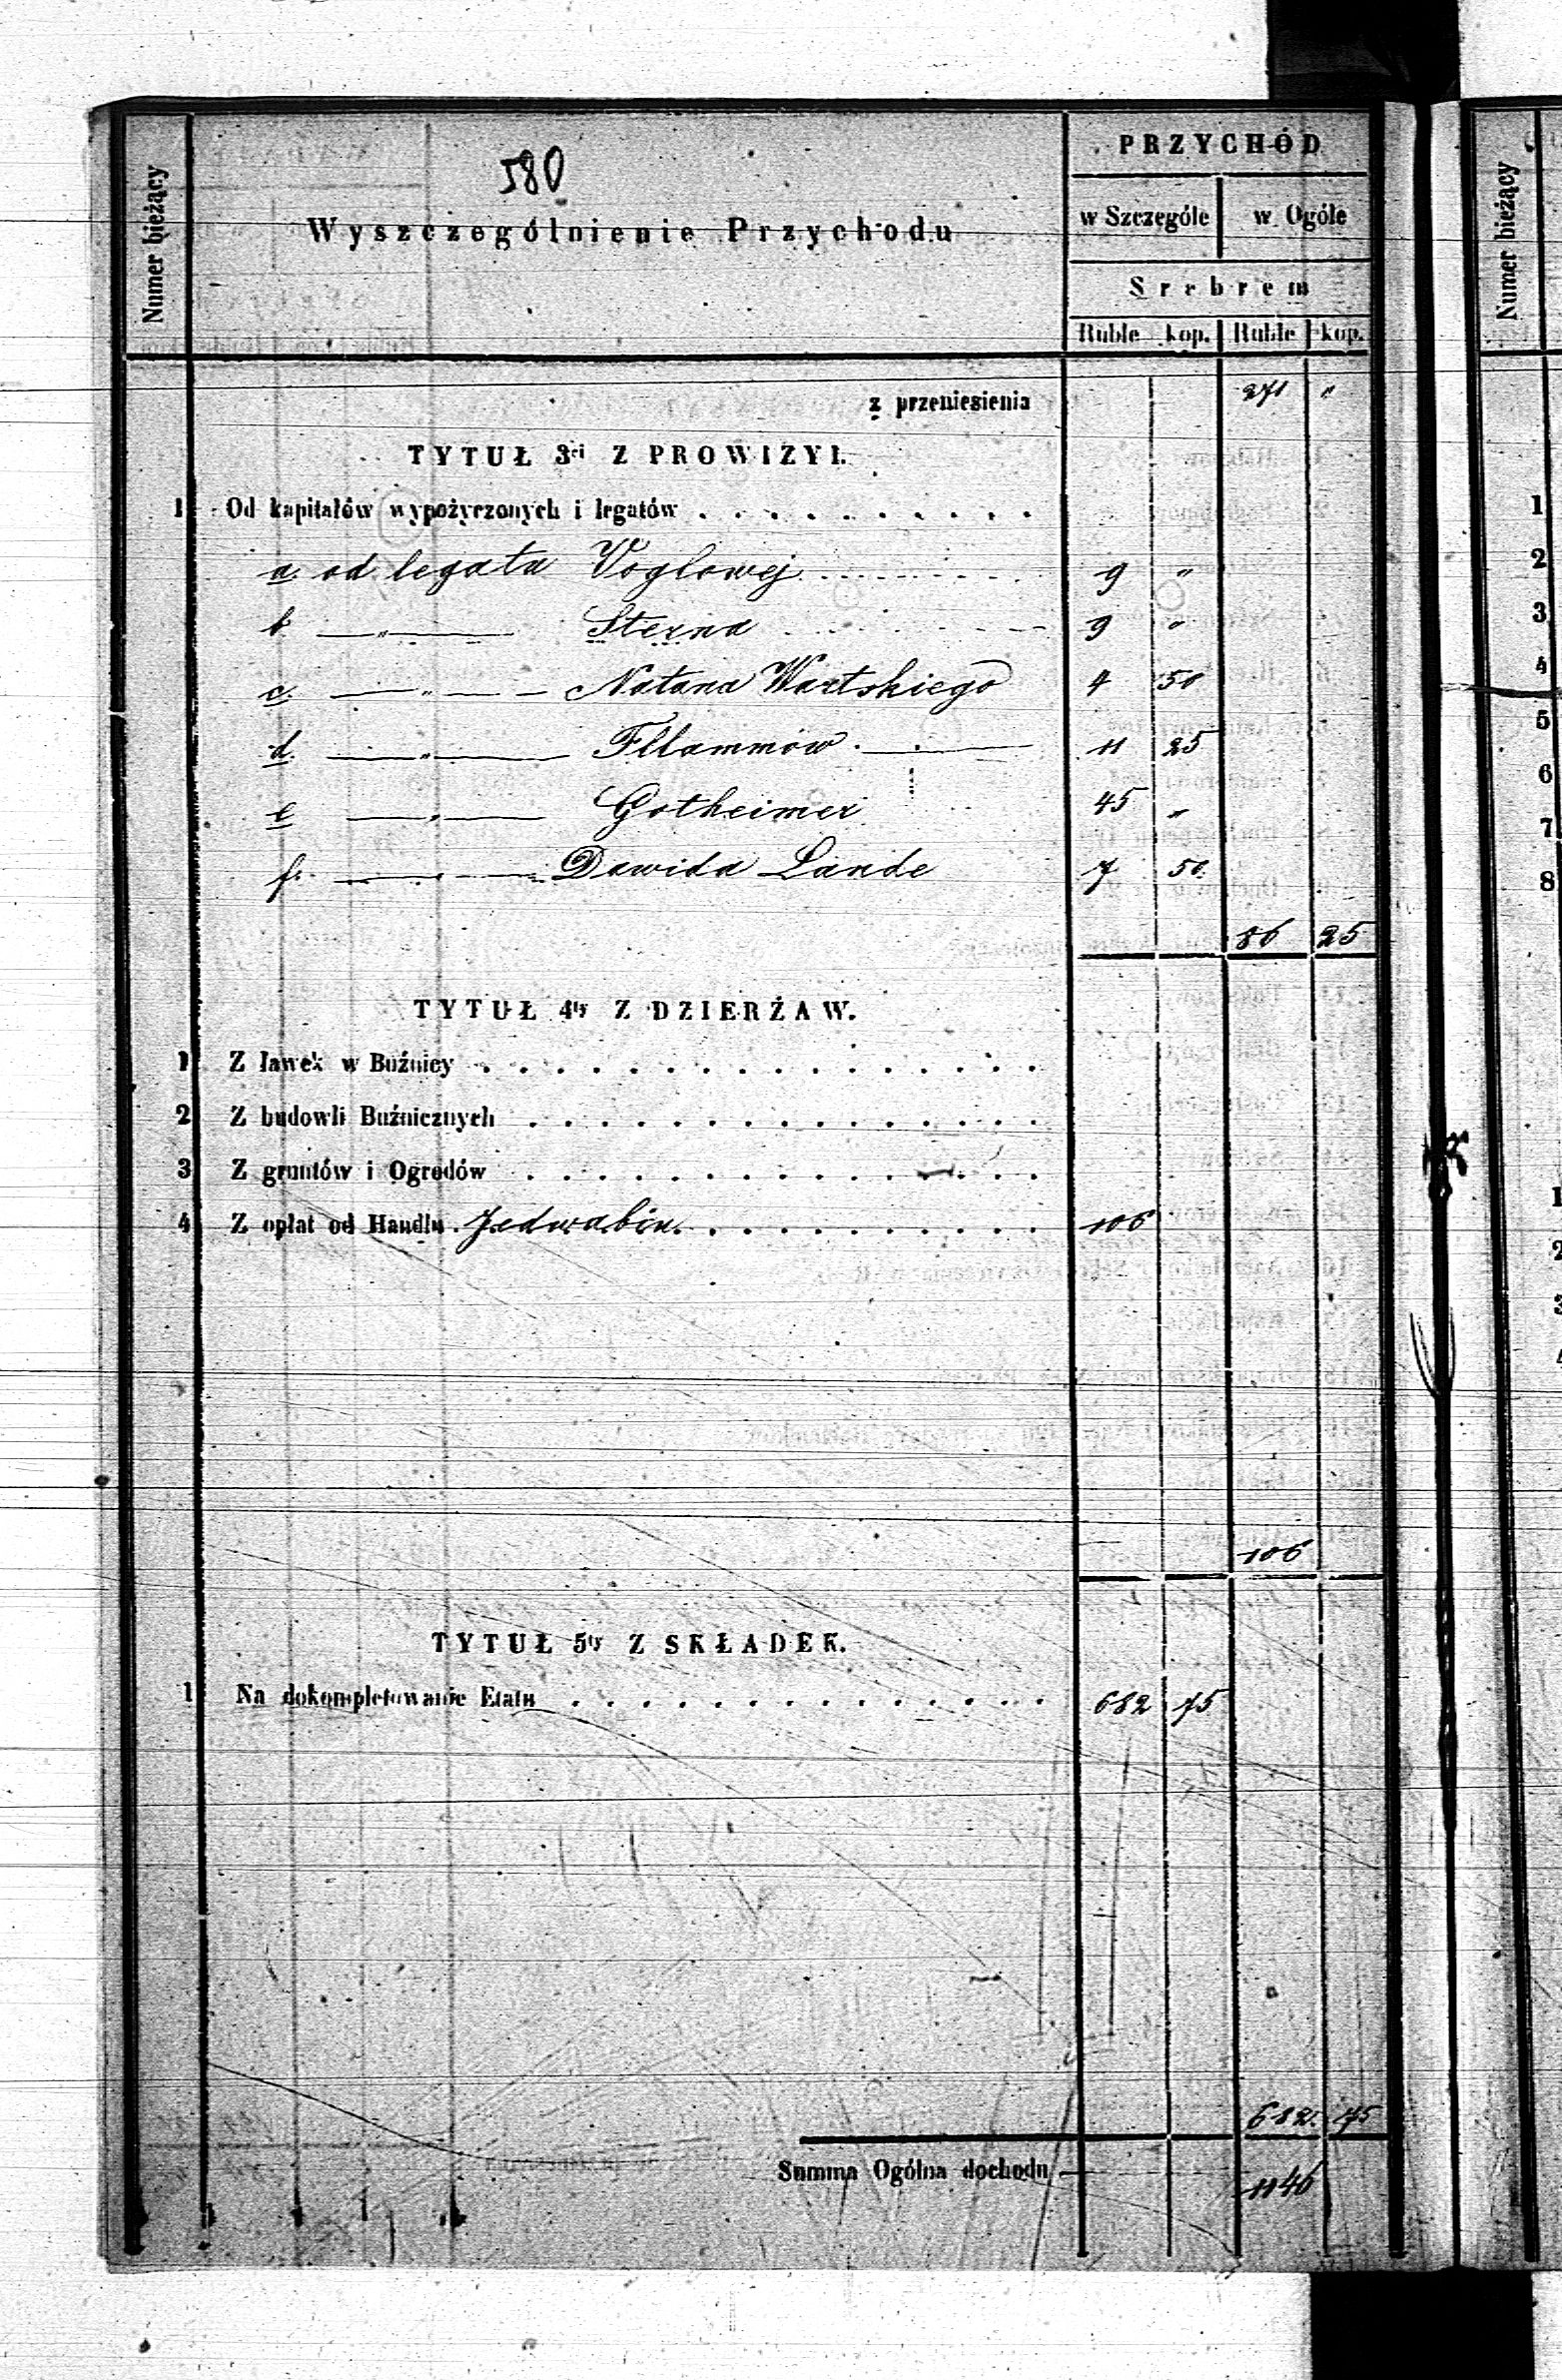 580
PRZYCHÓD
Numer bieżący
Wyszczególnienie Przychodu
w Szczególe w Ogóle
Srebrem
Ruble kop. Ruble kop.
z przeniesienia 271 "
TYTUŁ 3ci Z PROWIZYI.
1 Od kapitałów wypożyczonych i legatów
a. od legata Voglowej 9 "
b. — " — Sterna 9 "
c. — " — Natana Wartskiego 4 50
d. — " — Fllammow 11 25
e — " — Gotheimer 45 "
f. — " — Dawida Lande 7 50.
86 25
TYTUŁ 4ty Z DZIERŻAW.
1 Z ławek w Buźnicy
2 Z budowli Buźnicznych
3 Z gruntów i Ogrodów
4 Z opłat od Handlu Jedwabiu. 106
106
TYTUŁ 5ty Z SKŁADEK.
1 Na dokompletowanie Etatu 682 75
682. 75
Summa Ogólna dochodu 1146
Numer bieżący
1
2
3
4
5
6
7
8
1
2
3
4